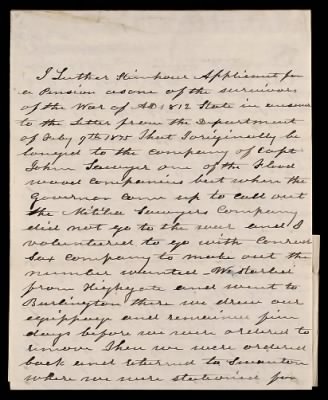 I Luther Stinhour Applicant for
a Pension as one of the survivors
of the War of AD 1812 State in answer
to the Letter from the Department
of Feby 9th 185 That I originally be
longed to the company of Capt
John Sawyer one of the Flood
wood companies but when the
Governor come up to call out
the Militia Sawyers Company
did not go to the war and I
volunteered to go with Conrad
Sax Company to make out the
number wanted - We started
from Highgate and went to
Burlington there we drew our
equippage and remained five
days before we were ordered to
remove Then we were ordered
back and returned to Swanton
where we were stationed for